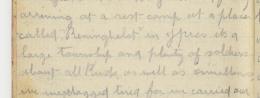 arriving at a rest camp at a place
called "Reninghelst" in Ypres its a
large township and plenty of soldiers
about all kinds, as well as
we
tired for we carried our